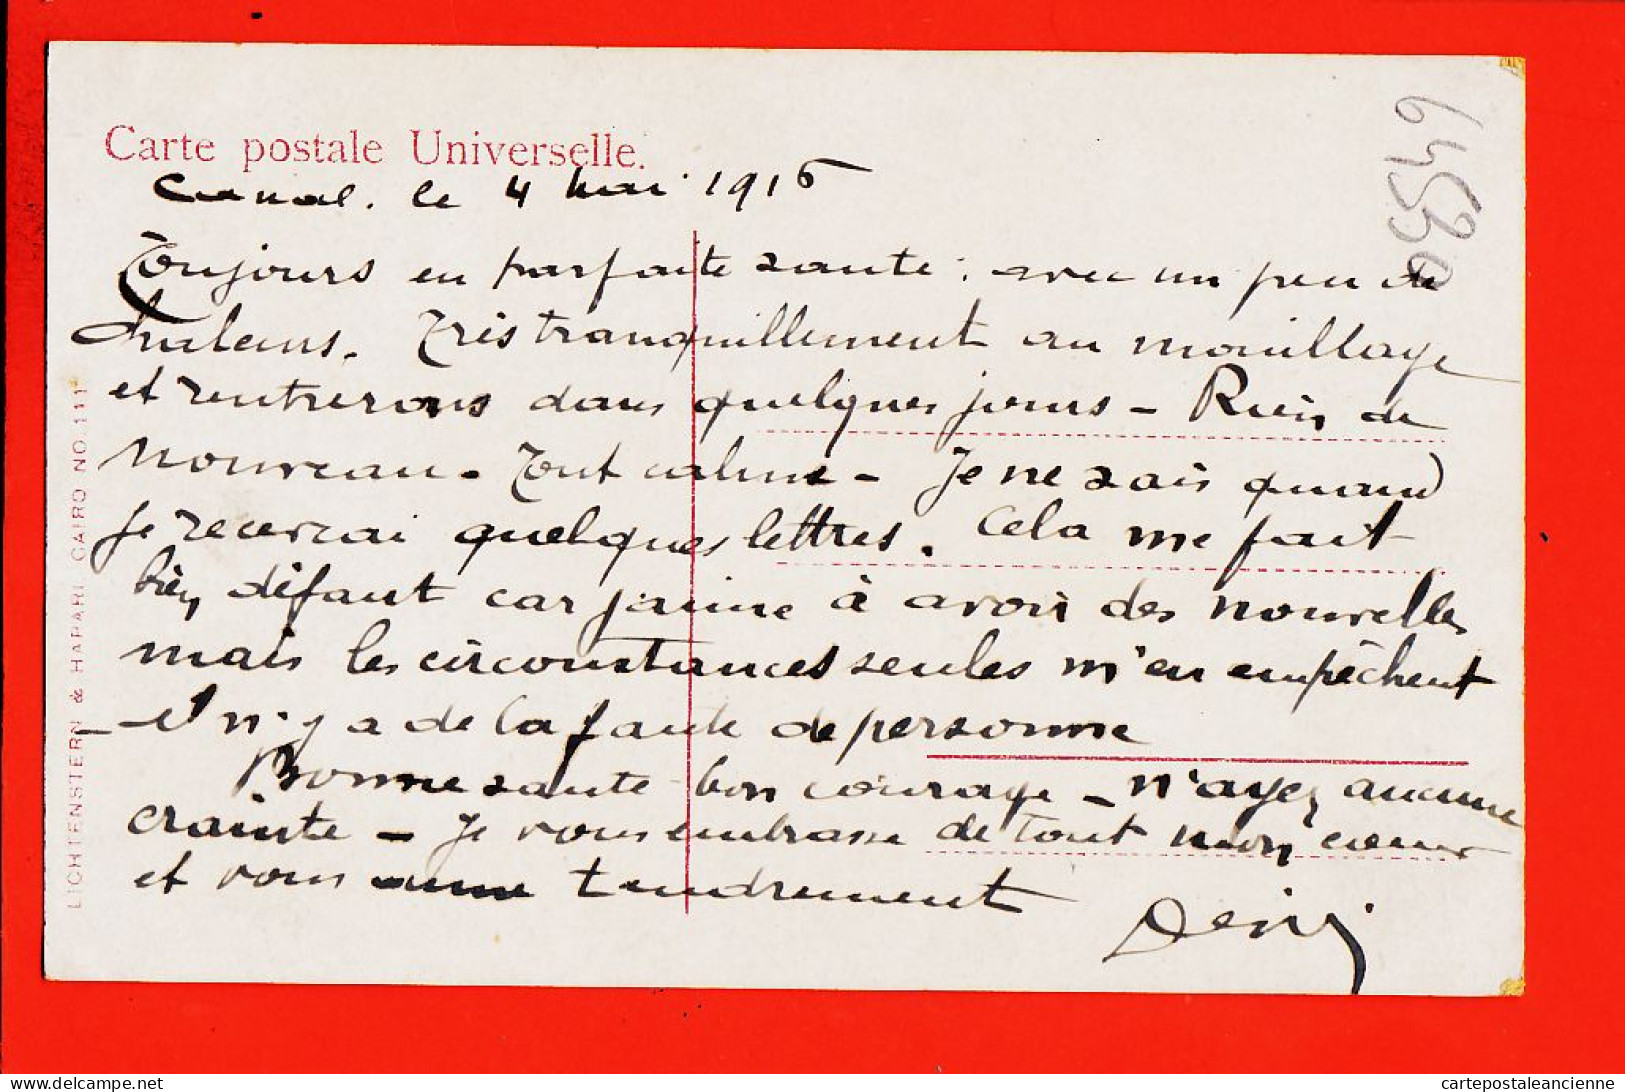 Carte postale Universelle.
Canal. le 4 mai 1916
Toujours en parfaite santé. avec un peu de
chaleurs. Très tranquillement au mouillage
et rentrerons dans quelques jours - Rien de
nouveau - Tout calme - Je ne sais quand
je recevrai quelques lettres. Cela me fait
bien défaut car j'aime à avoir des nouvelles
mais les circonstances seules m'en empêchent
- il n'y a de la faute de personne
Bonne santé - bon courage - n'ayez aucune
crainte - Je vous embrasse de tout mon cœur
et vous aime tendrement
Deni
LICHTENSTERN & HARARI, CAIRO NO. 111
64530
delcampe.net
cartepostaleancienne